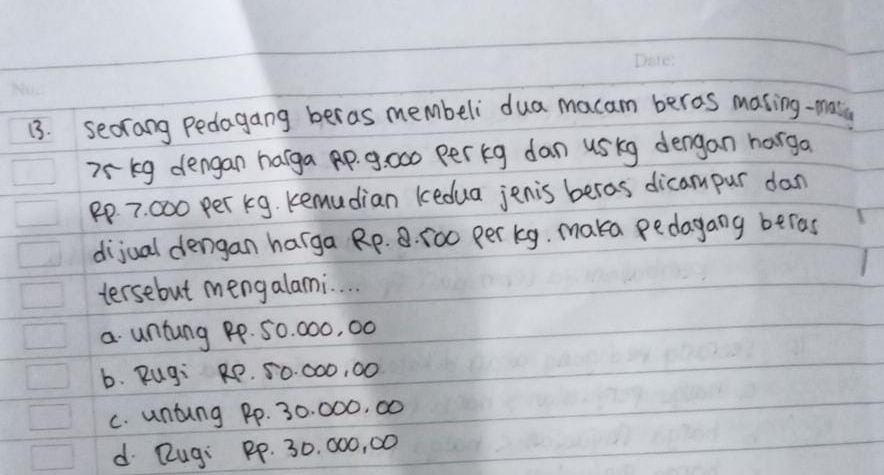 Date:
No:
13. seorang pedagang beras membeli dua macam beras masing-masing
75 kg dengan harga Rp. 9.000 per kg dan 45 kg dengan harga
Rp. 7.000 per kg. kemudian kedua jenis beras dicampur dan
dijual dengan harga Rp. 8.500 per kg. maka pedagang beras
tersebut mengalami....
a. untung Rp. 50.000,00
b. Rugi Rp. 50.000,00
c. untung Rp. 30.000,00
d. Rugi Rp. 30.000,00